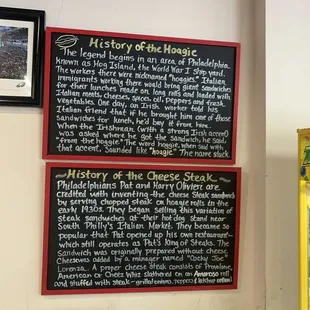 History of the Hoagie
The legend begins in an area of Philadelphia
known as Hog Island, the World War I ship yard.
The workers there were nicknamed "hoagies". Italian
immigrants working there would bring giant sandwiches
for their lunches made on long rolls and loaded with
Italian meats, cheeses, spices, oil, peppers and fresh
vegetables. One day, an Irish worker told his
Italian friend that if he brought him one of those
sandwiches for lunch, he'd buy it from him.
When the Irishman (with a strong Irish accent)
was asked where he got the sandwich, he said,
"from the hoagie." The word hoagie, when said with
that accent, sounded like "hoagie" The name stuck.
History of the Cheese Steak
Philadelphians Pat and Harry Olivieri are
credited with inventing the cheese steak sandwich
by serving chopped steak on hoagie rolls in the
early 1930s. They began selling this variation of
steak sandwiches at their hot dog stand near
South Philly's Italian Market. They became so
popular that Pat opened up his own restaurant-
which still operates as Pat's King of Steaks. The
Sandwich was originally prepared without cheese.
Cheese was added by a manager named "Cocky Joe"
Lorenza. A proper cheese steak consists of Provolone,
American or Cheez Whiz slathered on an Amoroso roll
and stuffed with steak - grilled onions, peppers &